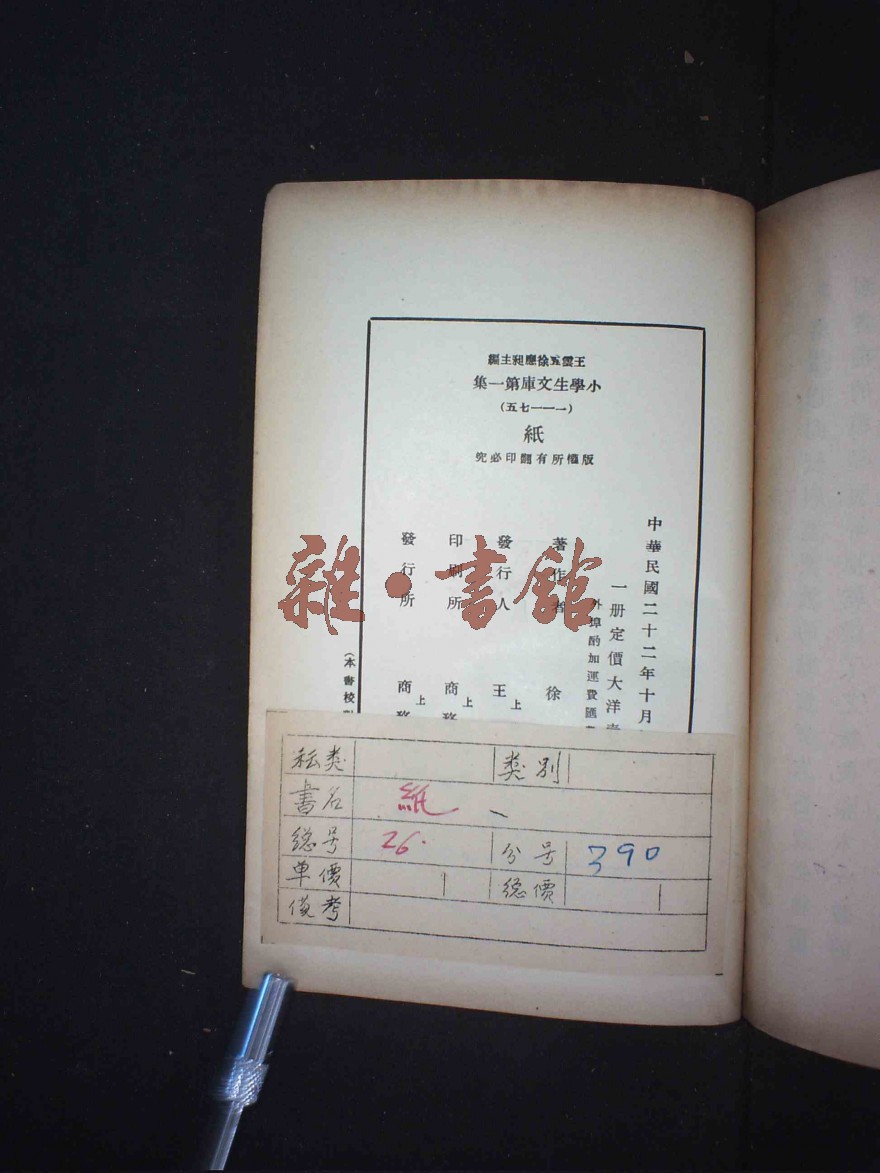 王雲五徐應昶主編
小學生文庫第一集
(一一一七五)
紙
版權所有翻印必究
中華民國二十二年十月
一册定價大洋
外埠酌加運費匯
著作者 徐
發行人 上 王
印刷所 上 商務
發行所 上 商務
(本書校
雜·書館
类别
書名 紙
總号 26.
分号 390
单價
總價
備考